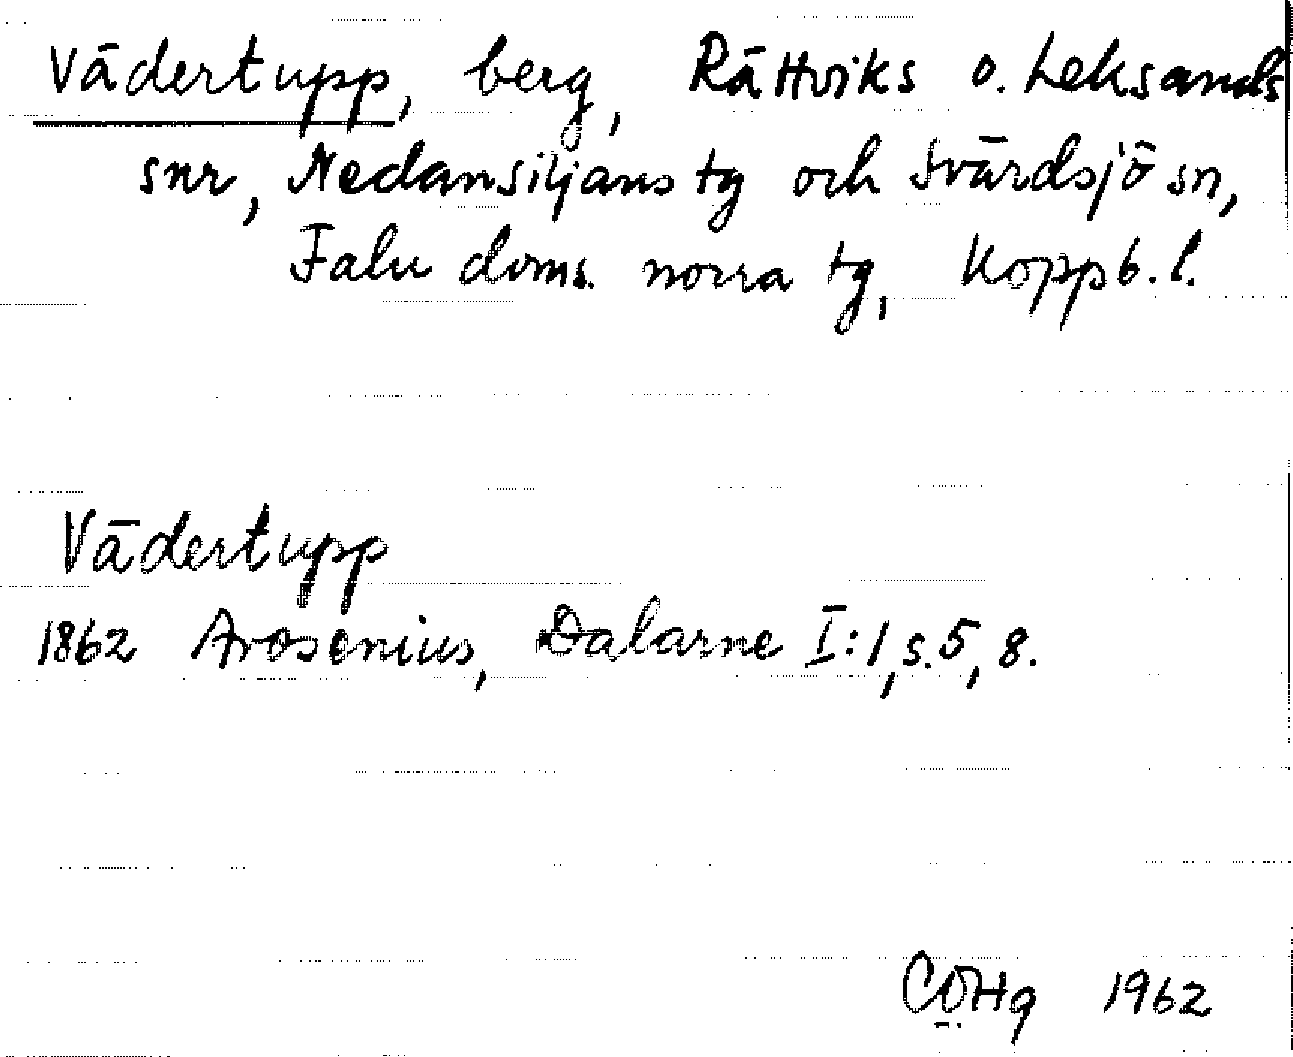 Vädertupp, berg, Rättviks o. Leksands
snr, Nedansiljans tg och Svärdsjö sn,
Falu doms. norra tg, Koppb. l.
Vädertupp
1862 Arosenius, Dalarne I:1, s. 5, 8.
CÖHg 1962